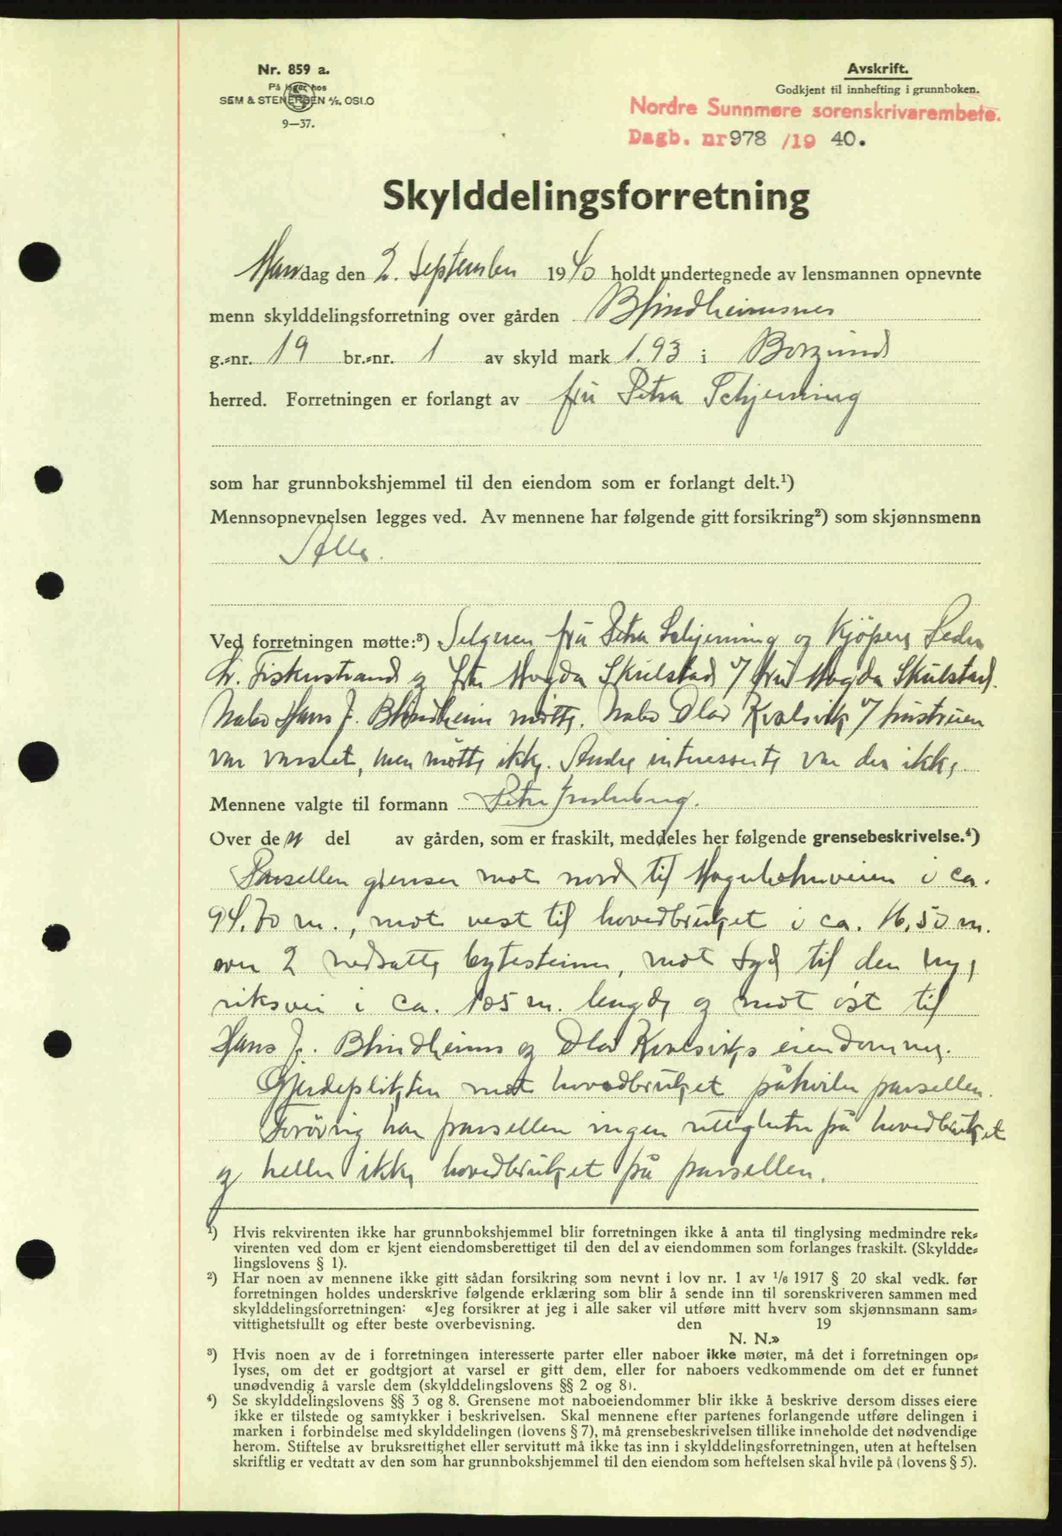 Nr. 859 a.
På lager hos
SEM & STENERSEN A/S. OSLO
9—37.
Avskrift.
Godkjent til innhefting i grunnboken.
Nordre Sunnmøre sorenskrivarembete.
Dagb. nr 978 /19 40.
Skylddelingsforretning
Mandag den 2. September 1940 holdt undertegnede av lensmannen opnevnte
menn skylddelingsforretning over gården Blindheimsnes
g.-nr. 19 br.-nr. 1 av skyld mark 1.93 i Borgund
herred. Forretningen er forlangt av fru Petra Schjerning
som har grunnbokshjemmel til den eiendom som er forlangt delt.¹)
Mennsopnevnelsen legges ved. Av mennene har følgende gitt forsikring²) som skjønnsmenn
Alle.
Ved forretningen møtte:³) Selgeren fru Petra Schjerning og Kjöpere Peder
Chr. Fiskerstrand og fru Magda Skulstad v/ fru Magda Skulstad.
Nabo Hans J. Blindheim mötte. Nabo Olav Kvalsvik v/ hustruen
var varslet, men mötte ikke. Andre interesserte var der ikke.
Mennene valgte til formann
Over den del av gården, som er fraskilt, meddeles her følgende grensebeskrivelse.⁴)
Parsellen grenser mot nord til Magerholmveien i ca.
94.70 m., mot vest til hovedbruket i ca. 16,50 m.
over 2 nedsatte bytesteiner, mot syd til den nye
riksvei i ca. 105 m. lengde og mot öst til
Hans J. Blindheims og Olav Kvalsviks eiendommer.
Gjerdeplikten mot hovedbruket påhviler parsellen.
Forövrig har parsellen ingen rettigheter på hovedbruket
og heller ikke hovedbruket på parsellen.
¹) Hvis rekvirenten ikke har grunnbokshjemmel blir forretningen ikke å anta til tinglysing medmindre rek-
virenten ved dom er kjent eiendomsberettiget til den del av eiendommen som forlanges fraskilt. (Skyldde-
lingslovens § 1).
²) Har noen av mennene ikke gitt sådan forsikring som nevnt i lov nr. 1 av 1/6 1917 § 20 skal vedk. før
forretningen holdes underskrive følgende erklæring som blir å sende inn til sorenskriveren sammen med
skylddelingsforretningen: «Jeg forsikrer at jeg i alle saker vil utføre mitt hverv som skjønnsmann sam-
vittighetsfullt og efter beste overbevisning. den 19
N. N.»
³) Hvis noen av de i forretningen interesserte parter eller naboer ikke møter, må det i forretningen op-
lyses, om det er godtgjort at varsel er gitt dem, eller for naboers vedkommende om det er funnet
unødvendig å varsle dem (skylddelingslovens §§ 2 og 8).
⁴) Se skylddelingslovens §§ 3 og 8. Grensene mot naboeiendommer blir ikke å beskrive dersom disses eiere
ikke er tilstede og samtykker i beskrivelsen. Skal mennene efter partenes forlangende utføre delingen i
marken i forbindelse med skylddelingen (lovens § 7), må grensebeskrivelsen tillike inneholde det nødvendige
herom. Stiftelse av bruksrettighet eller servitutt må ikke tas inn i skylddelingsforretningen, uten at heftelsen
skriftlig er vedtatt av den som har grunnbokshjemmel til den eiendom som heftelsen skal hvile på (lovens § 5).